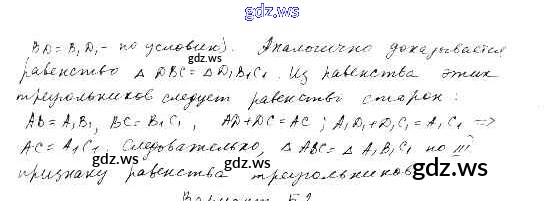 gdz.ws
BD = B₁D₁ - по условию). Аналогично доказывается
равенство △ DBC = △ D₁B₁C₁. Из равенства этих
треугольников следует равенство сторон:
AB = A₁B₁, BC = B₁C₁, AD + DC = AC; A₁D₁ + D₁C₁ = A₁C₁ =>
AC = A₁C₁. Следовательно, △ ABC = △ A₁B₁C₁ по III
признаку равенства треугольников
gdz.ws
gdz.ws
Вариант Б2